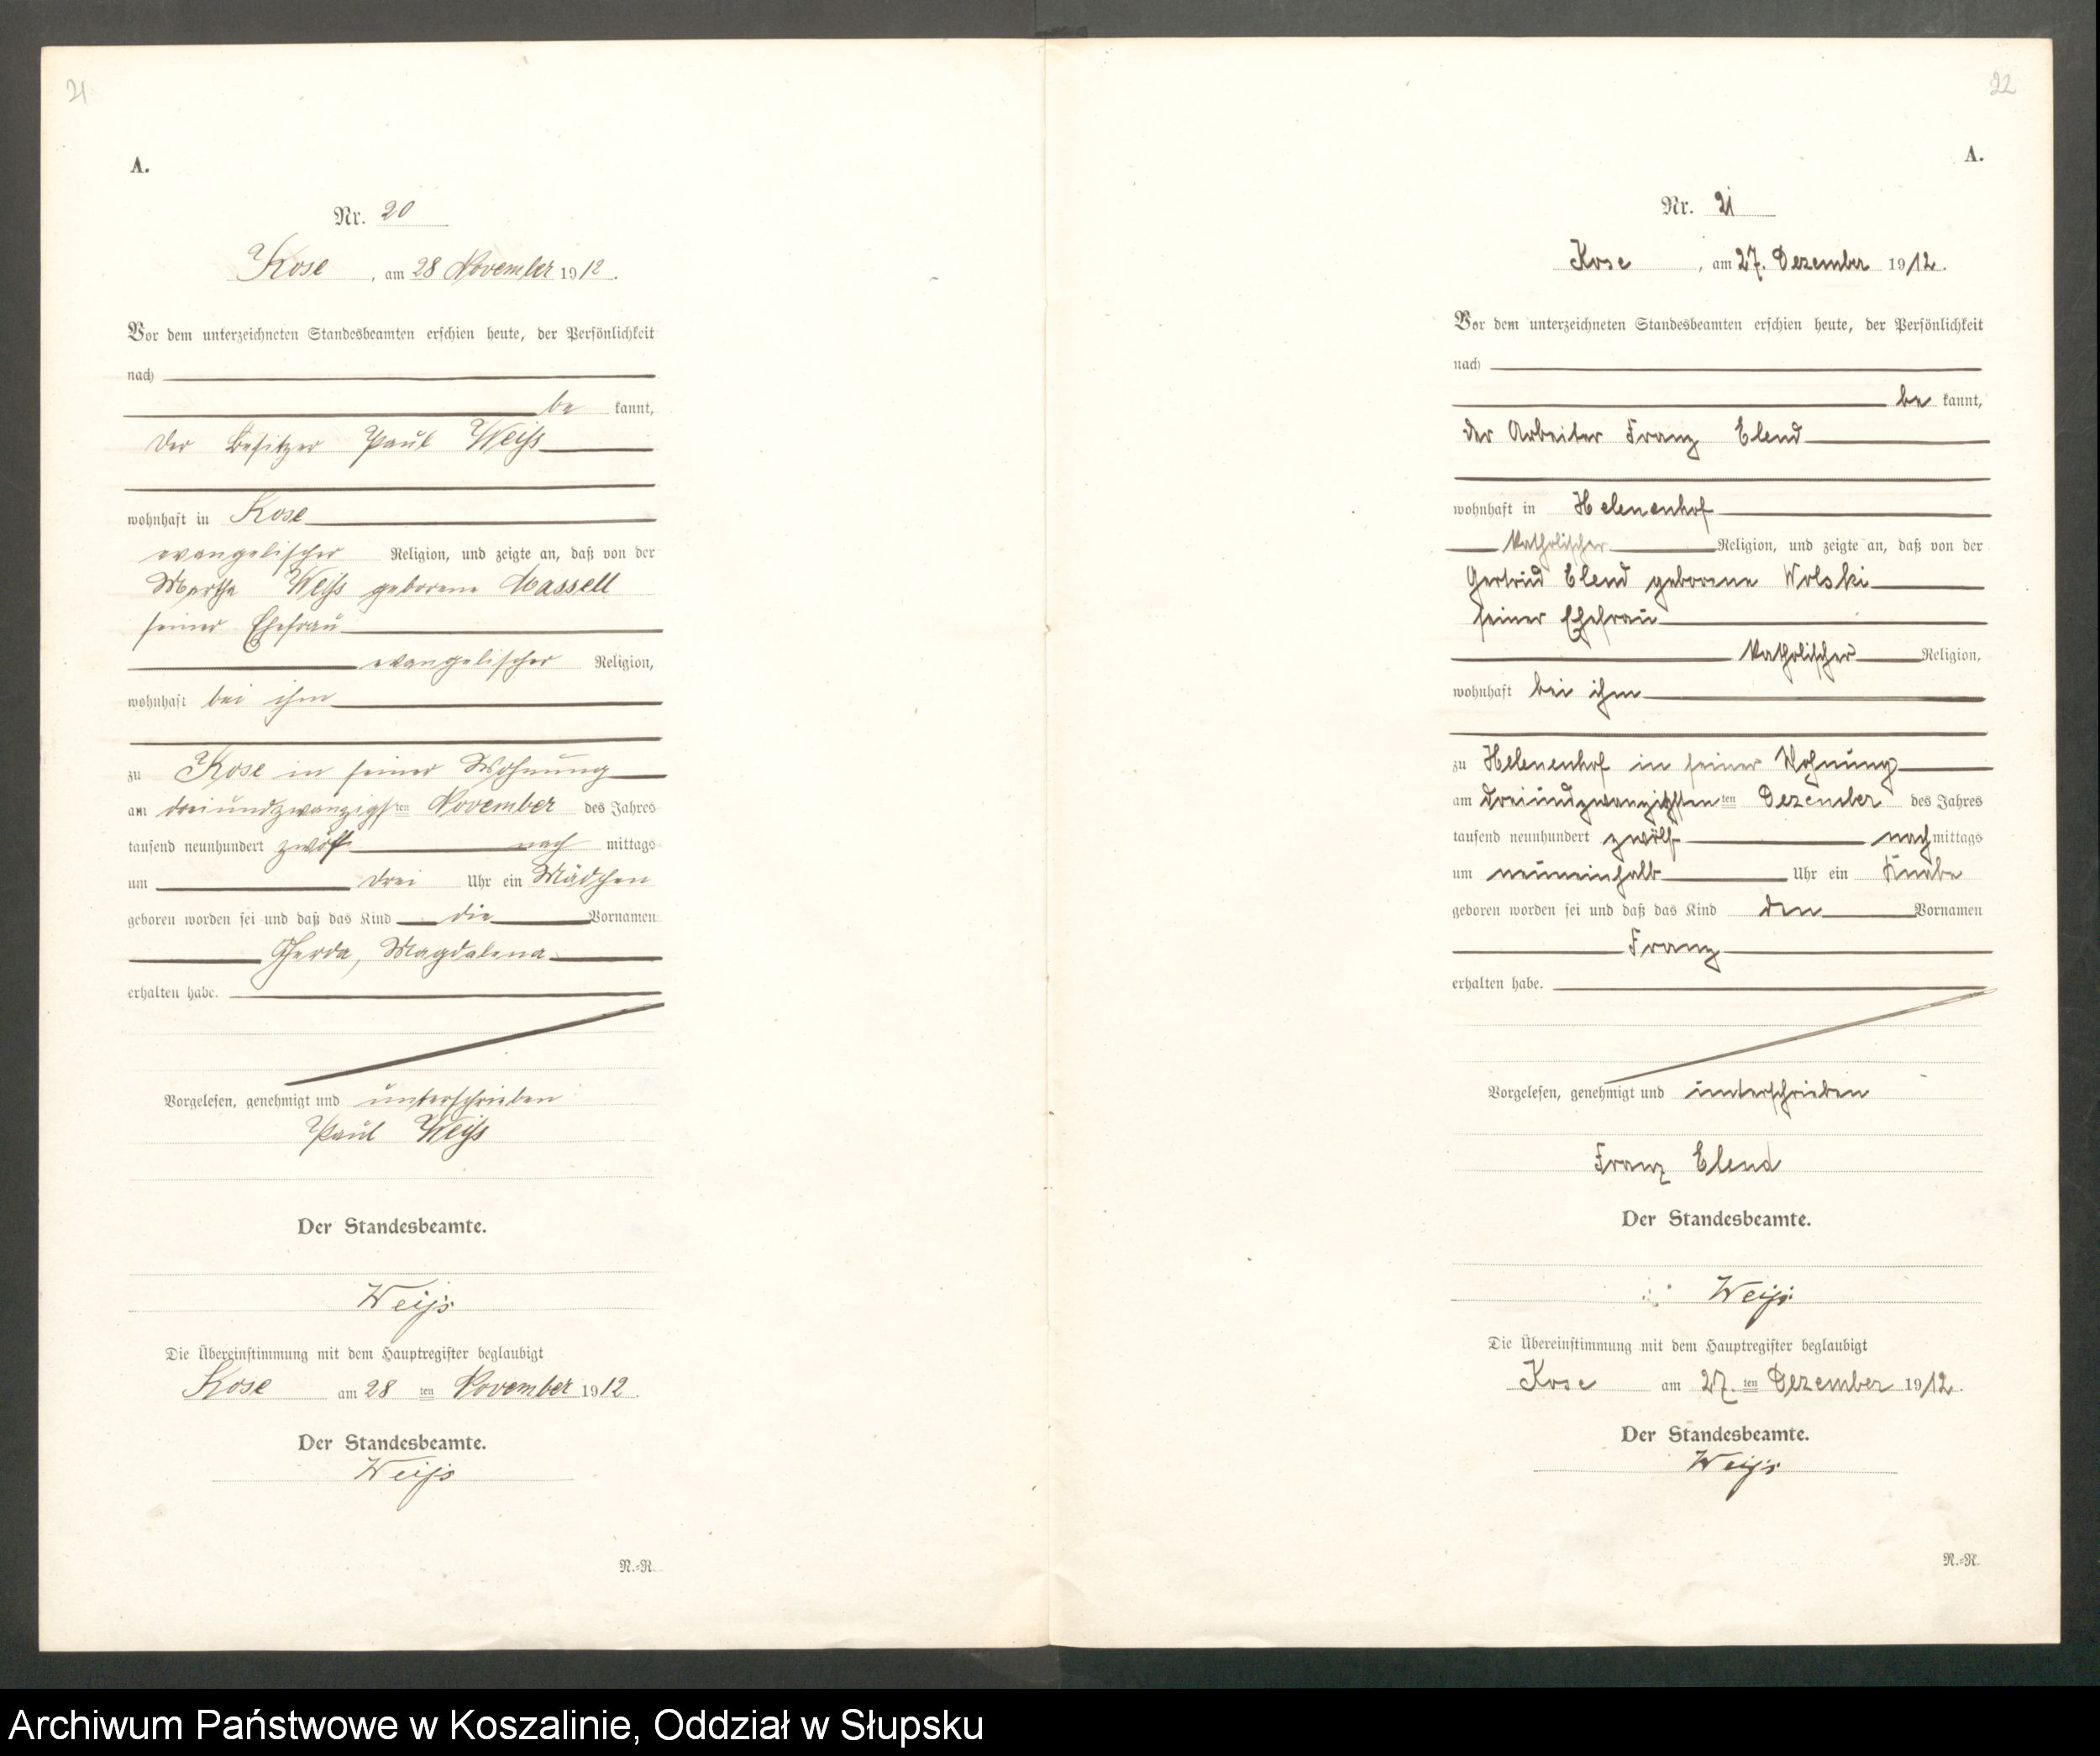 21
A.
Nr. 20
Kose, am 28 November 1912.
Vor dem unterzeichneten Standesbeamten erschien heute, der Persönlichkeit
nach
be kannt,
der Besitzer Paul Weiß
wohnhaft in Kose
evangelischer Religion, und zeigte an, daß von der
Martha Weiß geborene Massell
seiner Ehefrau
evangelischer Religion,
wohnhaft bei ihm
zu Kose in seiner Wohnung
am dreiundzwanzigsten November des Jahres
tausend neunhundert zwölf nach mittags
um drei Uhr ein Mädchen
geboren worden sei und daß das Kind die Vornamen
Gherda, Magdalena
erhalten habe.
Vorgelesen, genehmigt und unterschrieben
Paul Weiß
Der Standesbeamte.
Weiß
Die Übereinstimmung mit dem Hauptregister beglaubigt
Kose am 28 ten November 1912.
Der Standesbeamte.
Weiß
N.=R.
22
A.
Nr. 21
Kose, am 27. Dezember 1912.
Vor dem unterzeichneten Standesbeamten erschien heute, der Persönlichkeit
nach
be kannt,
der Arbeiter Franz Elend
wohnhaft in Helenenhof
katholischer Religion, und zeigte an, daß von der
Gertrud Elend geborene Wolski
seiner Ehefrau
katholischer Religion,
wohnhaft bei ihm
zu Helenenhof in seiner Wohnung
am dreiundzwanzigsten ten Dezember des Jahres
tausend neunhundert zwölf nach mittags
um neuneinhalb Uhr ein Knabe
geboren worden sei und daß das Kind den Vornamen
Franz
erhalten habe.
Vorgelesen, genehmigt und unterschrieben
Franz Elend
Der Standesbeamte.
Weiß
Die Übereinstimmung mit dem Hauptregister beglaubigt
Kose am 27. ten Dezember 1912.
Der Standesbeamte.
Weiß
N.=R.
Archiwum Państwowe w Koszalinie, Oddział w Słupsku